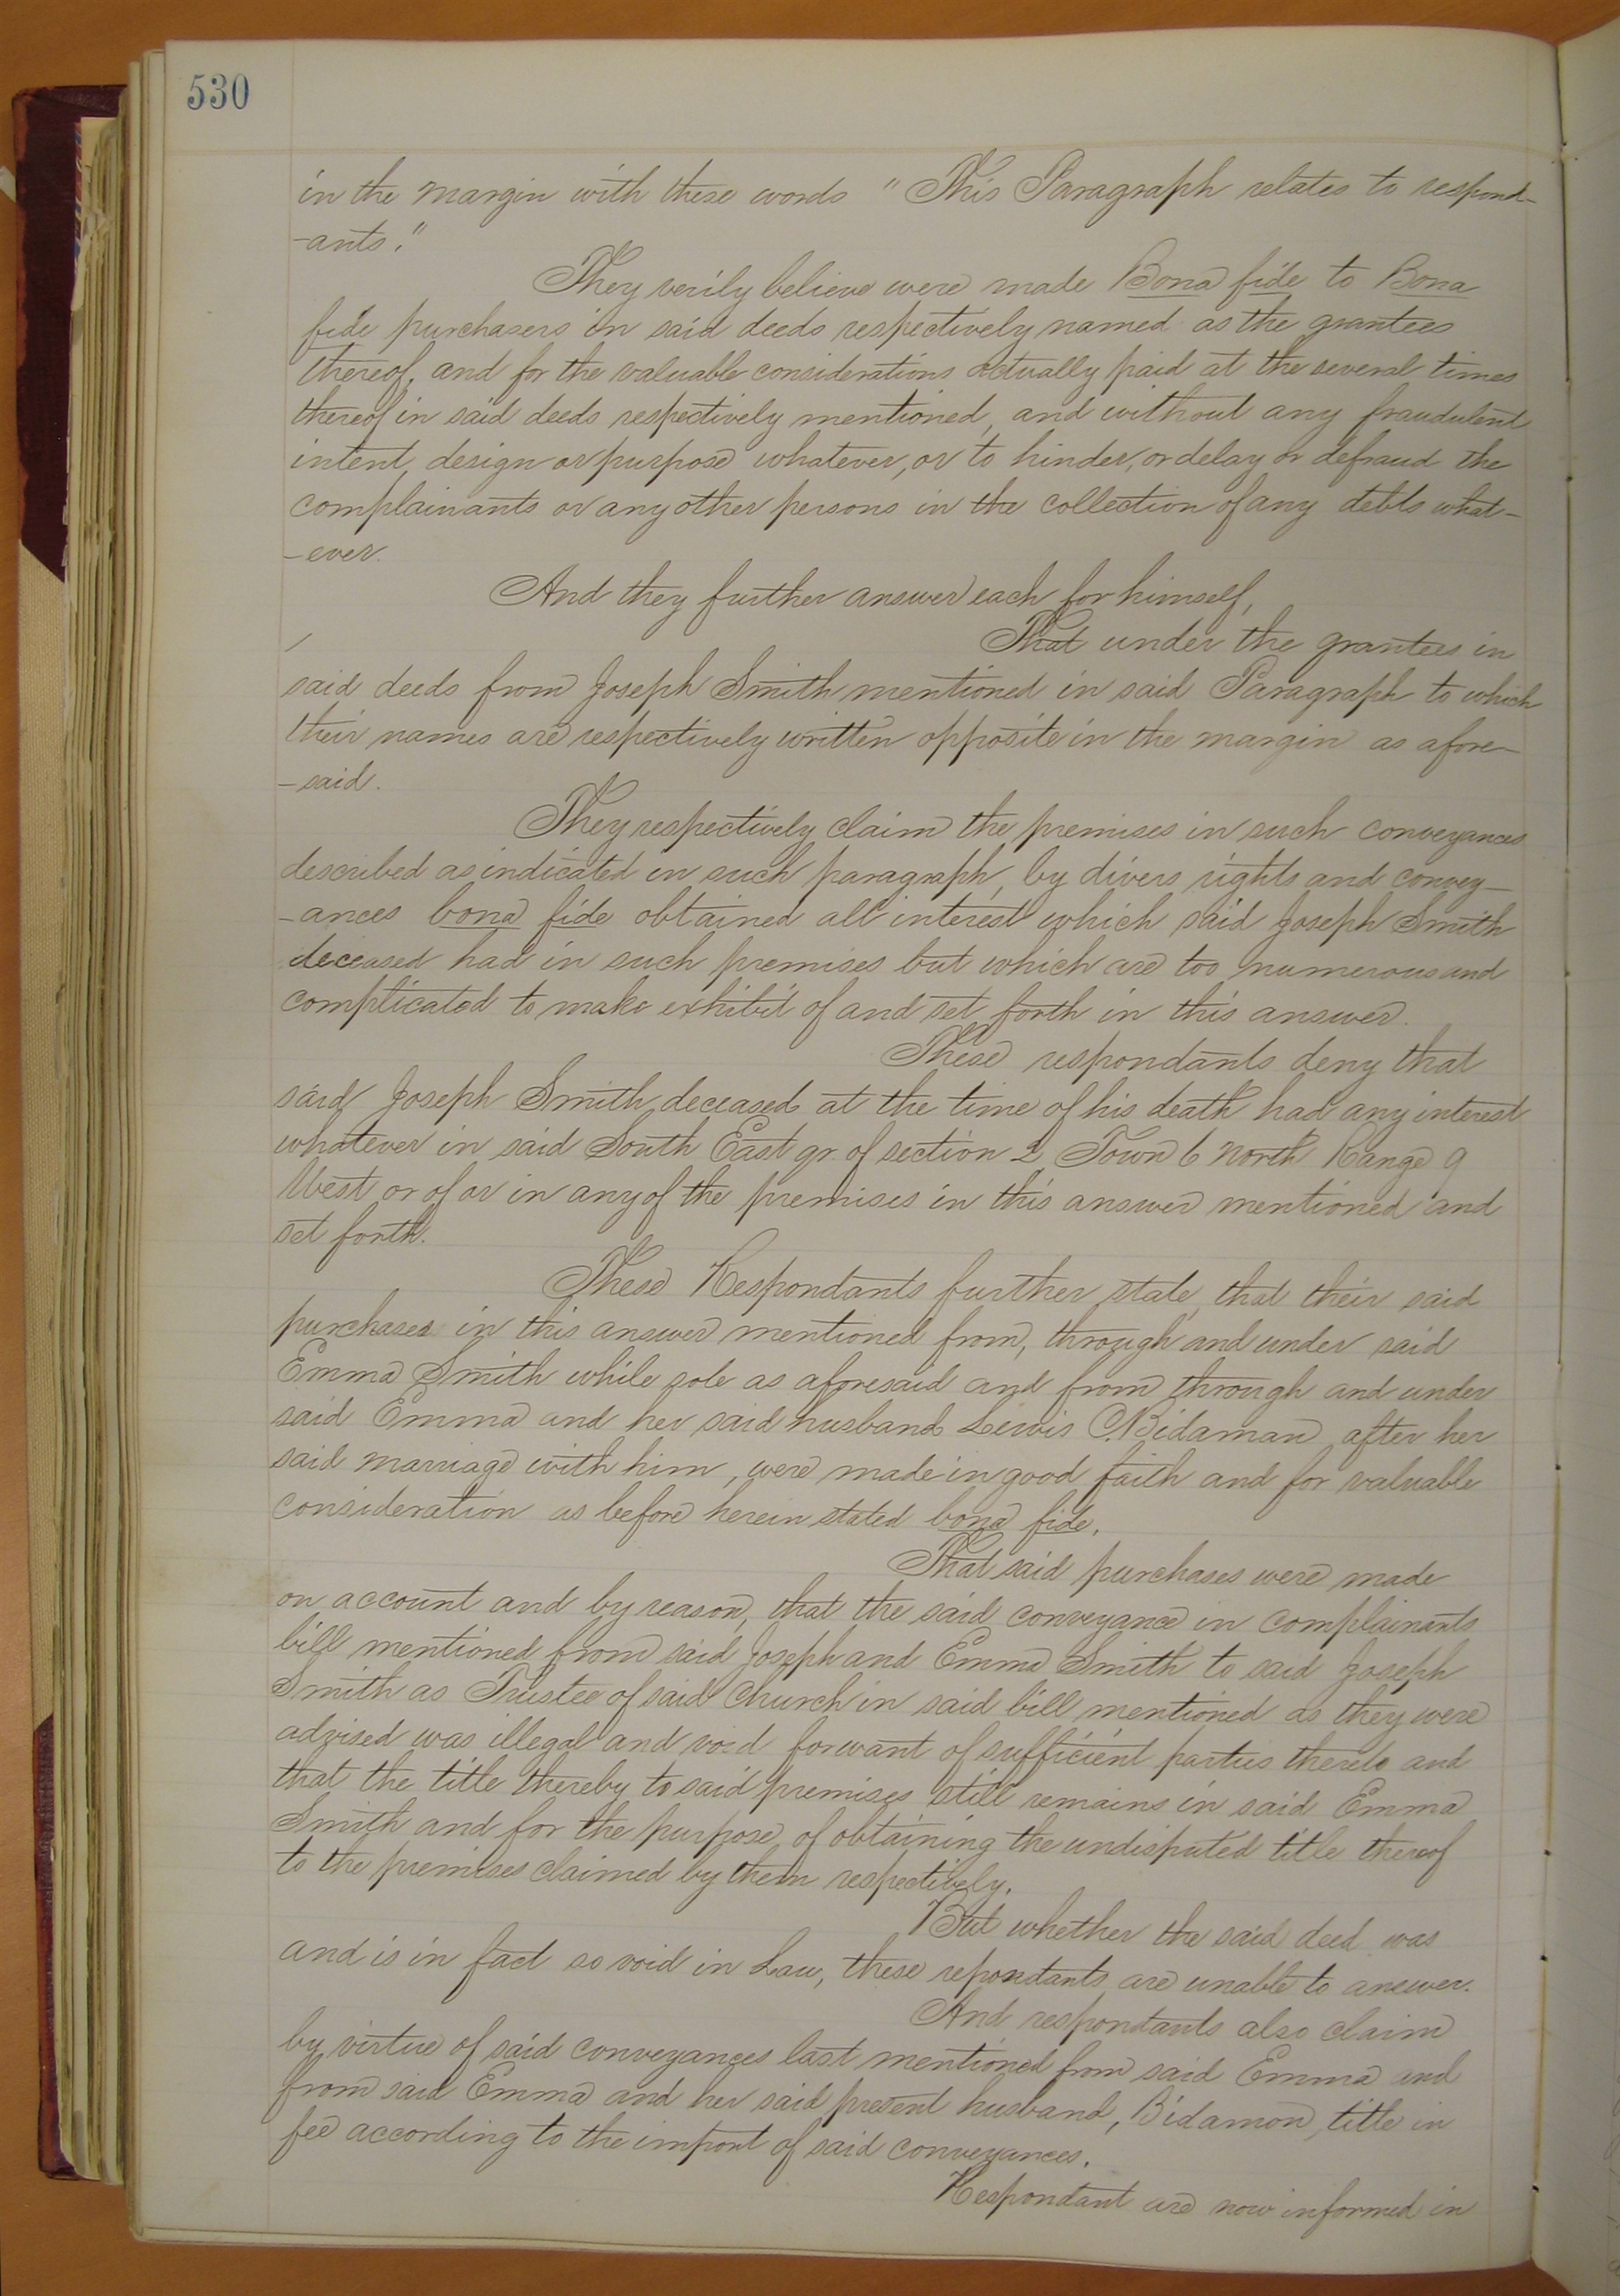 530
in the margin with these words " This Paragraph relates to respond-
-ants."
They verily believe were made Bona fide to Bona
fide purchasers in said deeds respectively named as the grantees
thereof, and for the valuable considerations actually paid at the several times
thereof in said deeds respectively mentioned, and without any fraudulent
intent, design or purpose whatever, or to hinder, or delay or defraud the
complainants or any other persons in the collection of any debts what-
-ever.
And they further answer each for himself,
That under the grantees in
said deeds from Joseph Smith mentioned in said Paragraph to which
their names are respectively written opposite in the margin as afore-
-said.
They respectively claim the premises in such conveyances
described as indicated in such paragraph, by divers rights and convey-
-ances bona fide obtained all interest which said Joseph Smith
deceased had in such premises but which are too numerous and
complicated to make exhibit of and set forth in this answer.
These respondants deny that
said Joseph Smith, deceased at the time of his death had any interest
whatever in said South East qr. of section 2 Town 6 North Range 9
West or of or in any of the premises in this answer mentioned and
set forth.
These Respondants further state that their said
purchases in this answer mentioned from, through and under said
Emma Smith while sole as aforesaid and from through and under
said Emma and her said husband Lewis C. Bidaman after her
said marriage with him, were made in good faith and for valuable
consideration as before herein stated bona fide.
That said purchases were made
on account and by reason, that the said conveyance in complainants
bill mentioned from said Joseph and Emma Smith to said Joseph
Smith as Trustee of said Church in said bill mentioned as they were
advised was illegal and void for want of sufficient parties thereto and
that the title thereby to said premises still remains in said Emma
Smith and for the purpose of obtaining the undisputed title thereof
to the premises claimed by them respectively.
But whether the said deed was
and is in fact so void in Law, these repondants are unable to answer.
And respondants also claim
by virtue of said conveyances last mentioned from said Emma and
from said Emma and her said present husband, Bidamon, title in
fee according to the import of said conveyances.
Respondant are now informed in